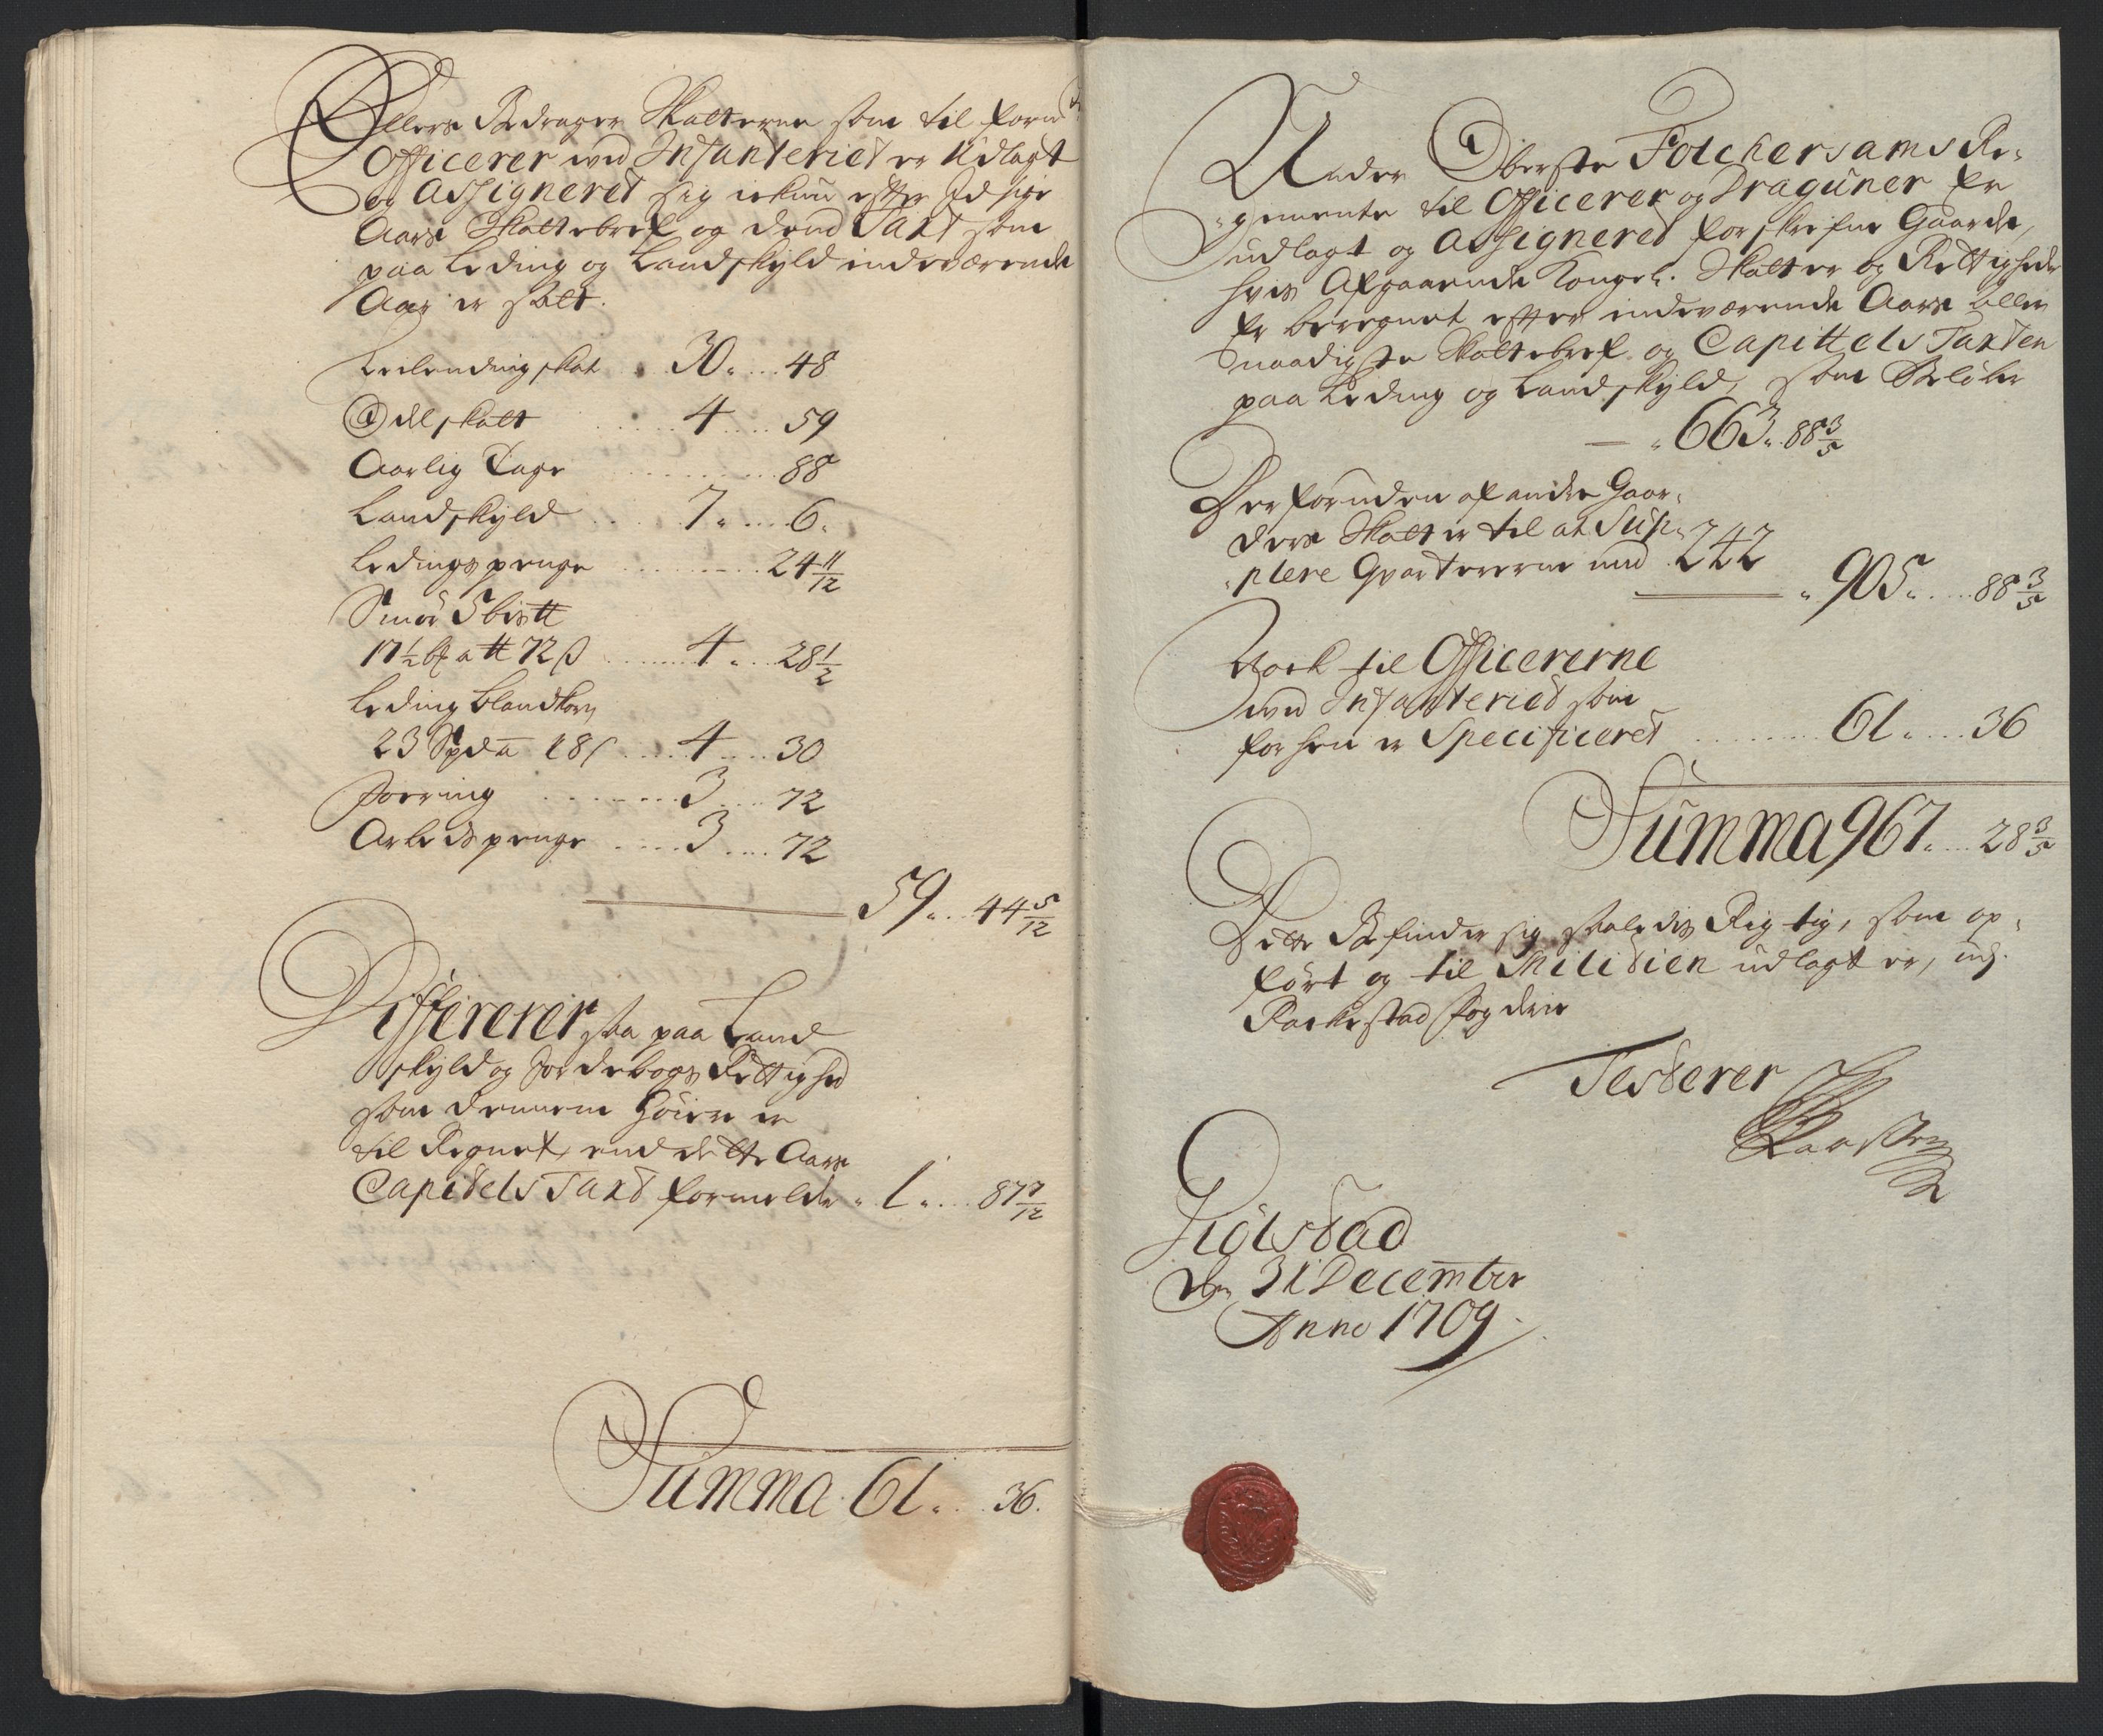 Ellers Bedrager Skatterne som til forn:
Officerer wed Infanteriet er Udlagt
og assigneret sig ickun efter
Aars Skattebref og dend Taxt som
paa Leding og Landskyld indeværende
Aar er satt.
Leilendingskat 30. 48
Odelskatt 4 59
Aarlig Tage 88
Landskyld 7. 6.
Ledingspenge 24 11/12
Smør
17½ a 72 ß 4. 28½
Leding blandkorn
23 Spd a 18 ß 4 30
Foering 3 72
Arbeidspenge 3 72
59. 44 5/12
Differerer saa paa Land
skyld og Jordebogs Rettighed
som dennem høiere er
til Regnet, end dette Aars
Capitels Taxt formelder . 1. 87 7/12
Summa 61. 36.
Under Oberste Folchersams Re:
:gemente til Officerer og Dragüner er
udlagt og assigneret forskrefne Gaarde,
hvis Afgaaende Kongel. Skatter og Rettigheder
er beregnet efter indeværende Aars aller
naadigste Skattebref og Capittels Taxten
paa Leding og Landskyld, som Beløber
— . 663. 88 3/5
Derforuden af andre Gaar:
ders Skatter til at Sup:
:plere Qvartererne med 242
. 905. 88 3/5
Noch til Officererne
wed Infanteriet som
forhen er Specificeret 61. 36
Summa 967. 28 3/5
Dette Befinder sig saaledis Rigtig, som op:
ført og til Militien udlagt er, udj
Rackestad fogderie
Testerer
Kiølstad
Den 31 December
Anno 1709.